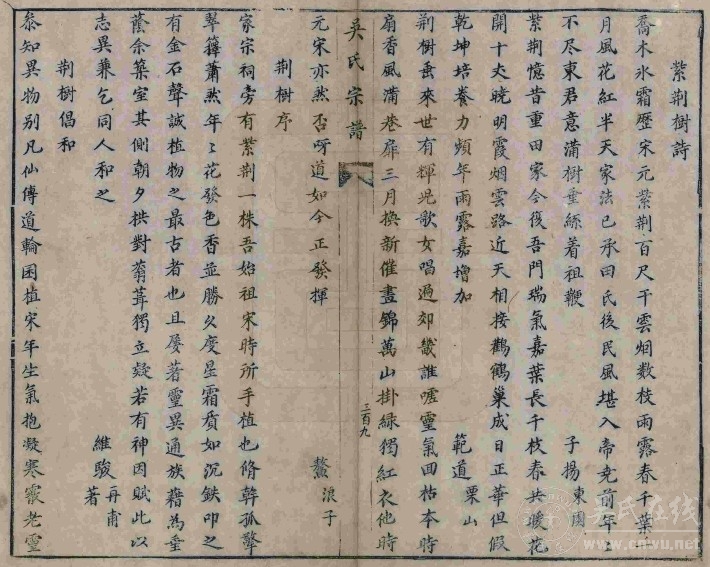 紫荆樹詩
喬木氷霜歷宋元紫荆百尺干雲烟数枝雨露春千葉一
月風花紅半天家法已承田氏後民風堪入帝堯前年年
不尽東君意滿樹重絲着祖鞭
子揚東園
紫荆憶昔重田家今復吾門瑞氣嘉葉長千枝春共暖花
開十丈曉明霞烟雲路近天相接鸛鶴巢成日正華但假
乾坤培養力頻年雨露嘉增加
範道栗山
荆樹畨來世有輝兒歌女唱過郊畿誰噓靈氣回枯本時
扇香風滿巷扉三月換新催晝錦萬山掛緑獨紅衣他時
吳氏宗譜
三百九
元宋亦然否呵道如今正發揮
鰲浪子
荆樹序
家宗祠旁有紫荆一株吾始祖宋時所手植也脩幹孤擎
翠籜蕭然年々花發色香並勝久度星霜質如沉鉄叩之
有金石聲誠植物之最古者也且屡著靈異通族藉為垂
蔭余築室其側朝夕拱對蓊葺獨立凝若有神因賦此以
志異兼乞同人和之
維駿再甫著
荆樹倡和
忝知異物别凡仙傳道輪囷植宋年生氣抱凝寒霰老靈
吴氏在线
www.cnwu.net